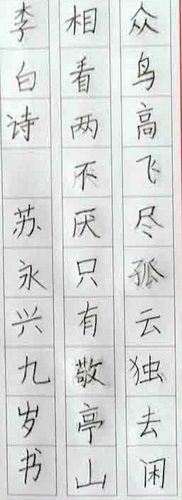 众鸟高飞尽孤云独去闲
相看两不厌只有敬亭山
李白诗 苏永兴九岁书